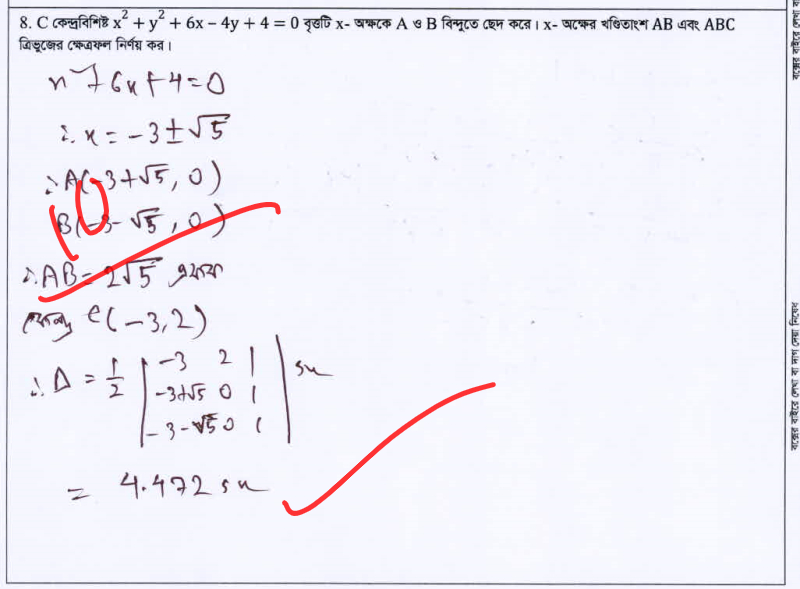 8. C কেন্দ্রবিশিষ্ট x² + y² + 6x − 4y + 4 = 0 বৃত্তটি x- অক্ষকে A ও B বিন্দুতে ছেদ করে। x- অক্ষের খণ্ডিতাংশ AB এবং ABC
ত্রিভুজের ক্ষেত্রফল নির্ণয় কর।
x² + 6x + 4 = 0
∴ x = −3 ± √5
∴ A(−3+√5, 0)
B(−3−√5, 0)
∴ AB = 2√5 একক
কেন্দ্র C(−3, 2)
∴ Δ = 1/2 | −3 2 1 | su
| −3+√5 0 1 |
| −3−√5 0 1 |
= 4.472 su
বক্সের বাইরে লেখা বা দাগ দেয়া নিষেধ